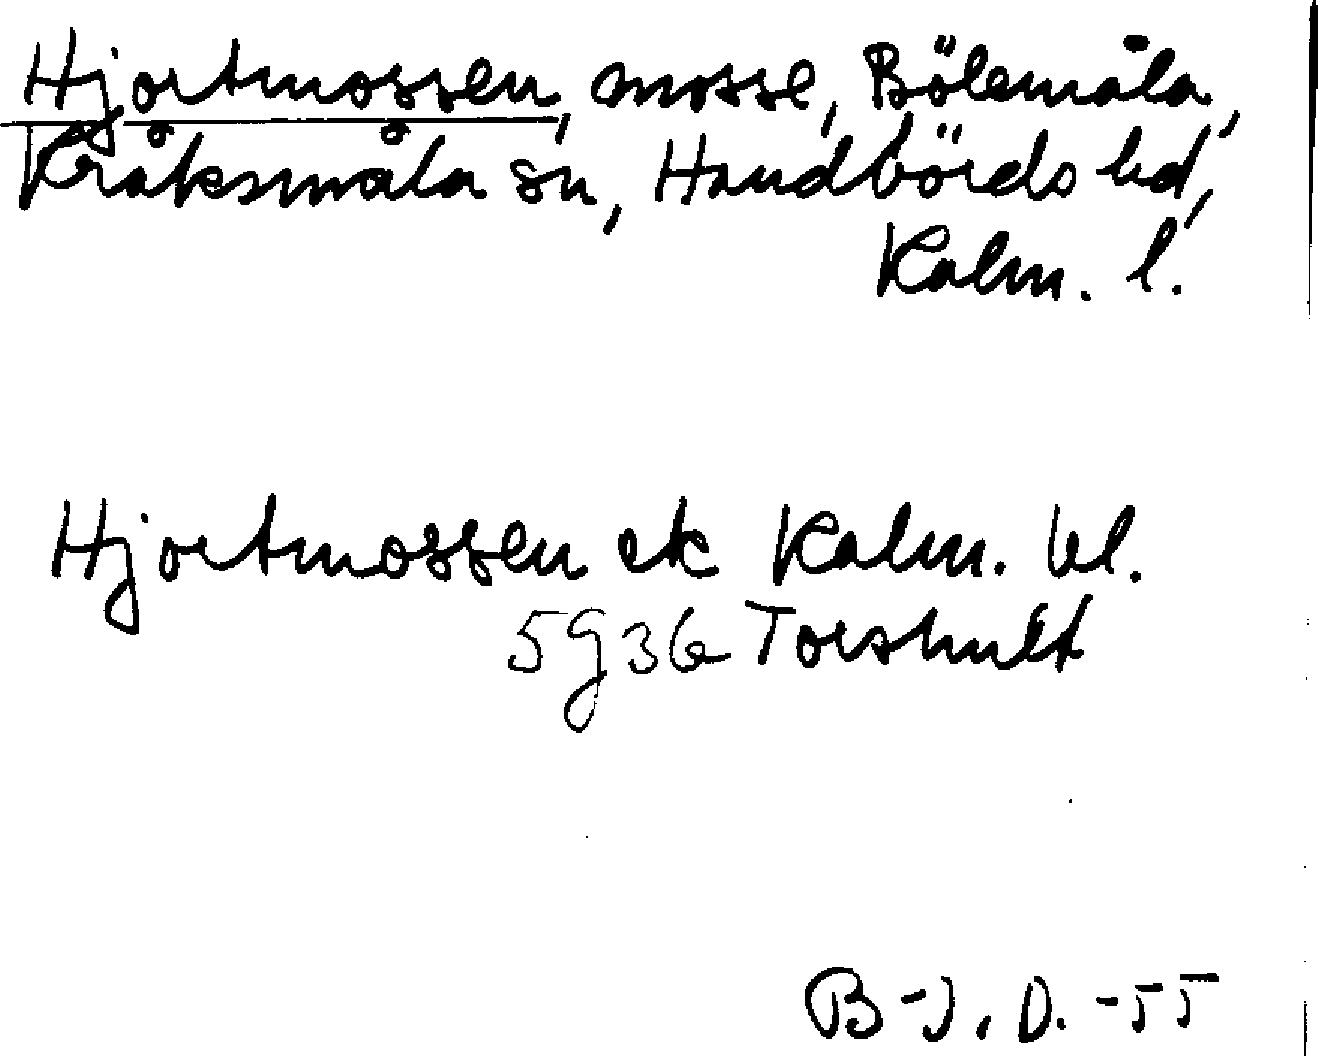 Hjortmossen, mosse, Bölemåla,
Kråksmåla sn, Handbörds hd,
Kalm. l.
Hjortmossen ek Kalm. bl.
5g36 Torshult
B-J. D. -55